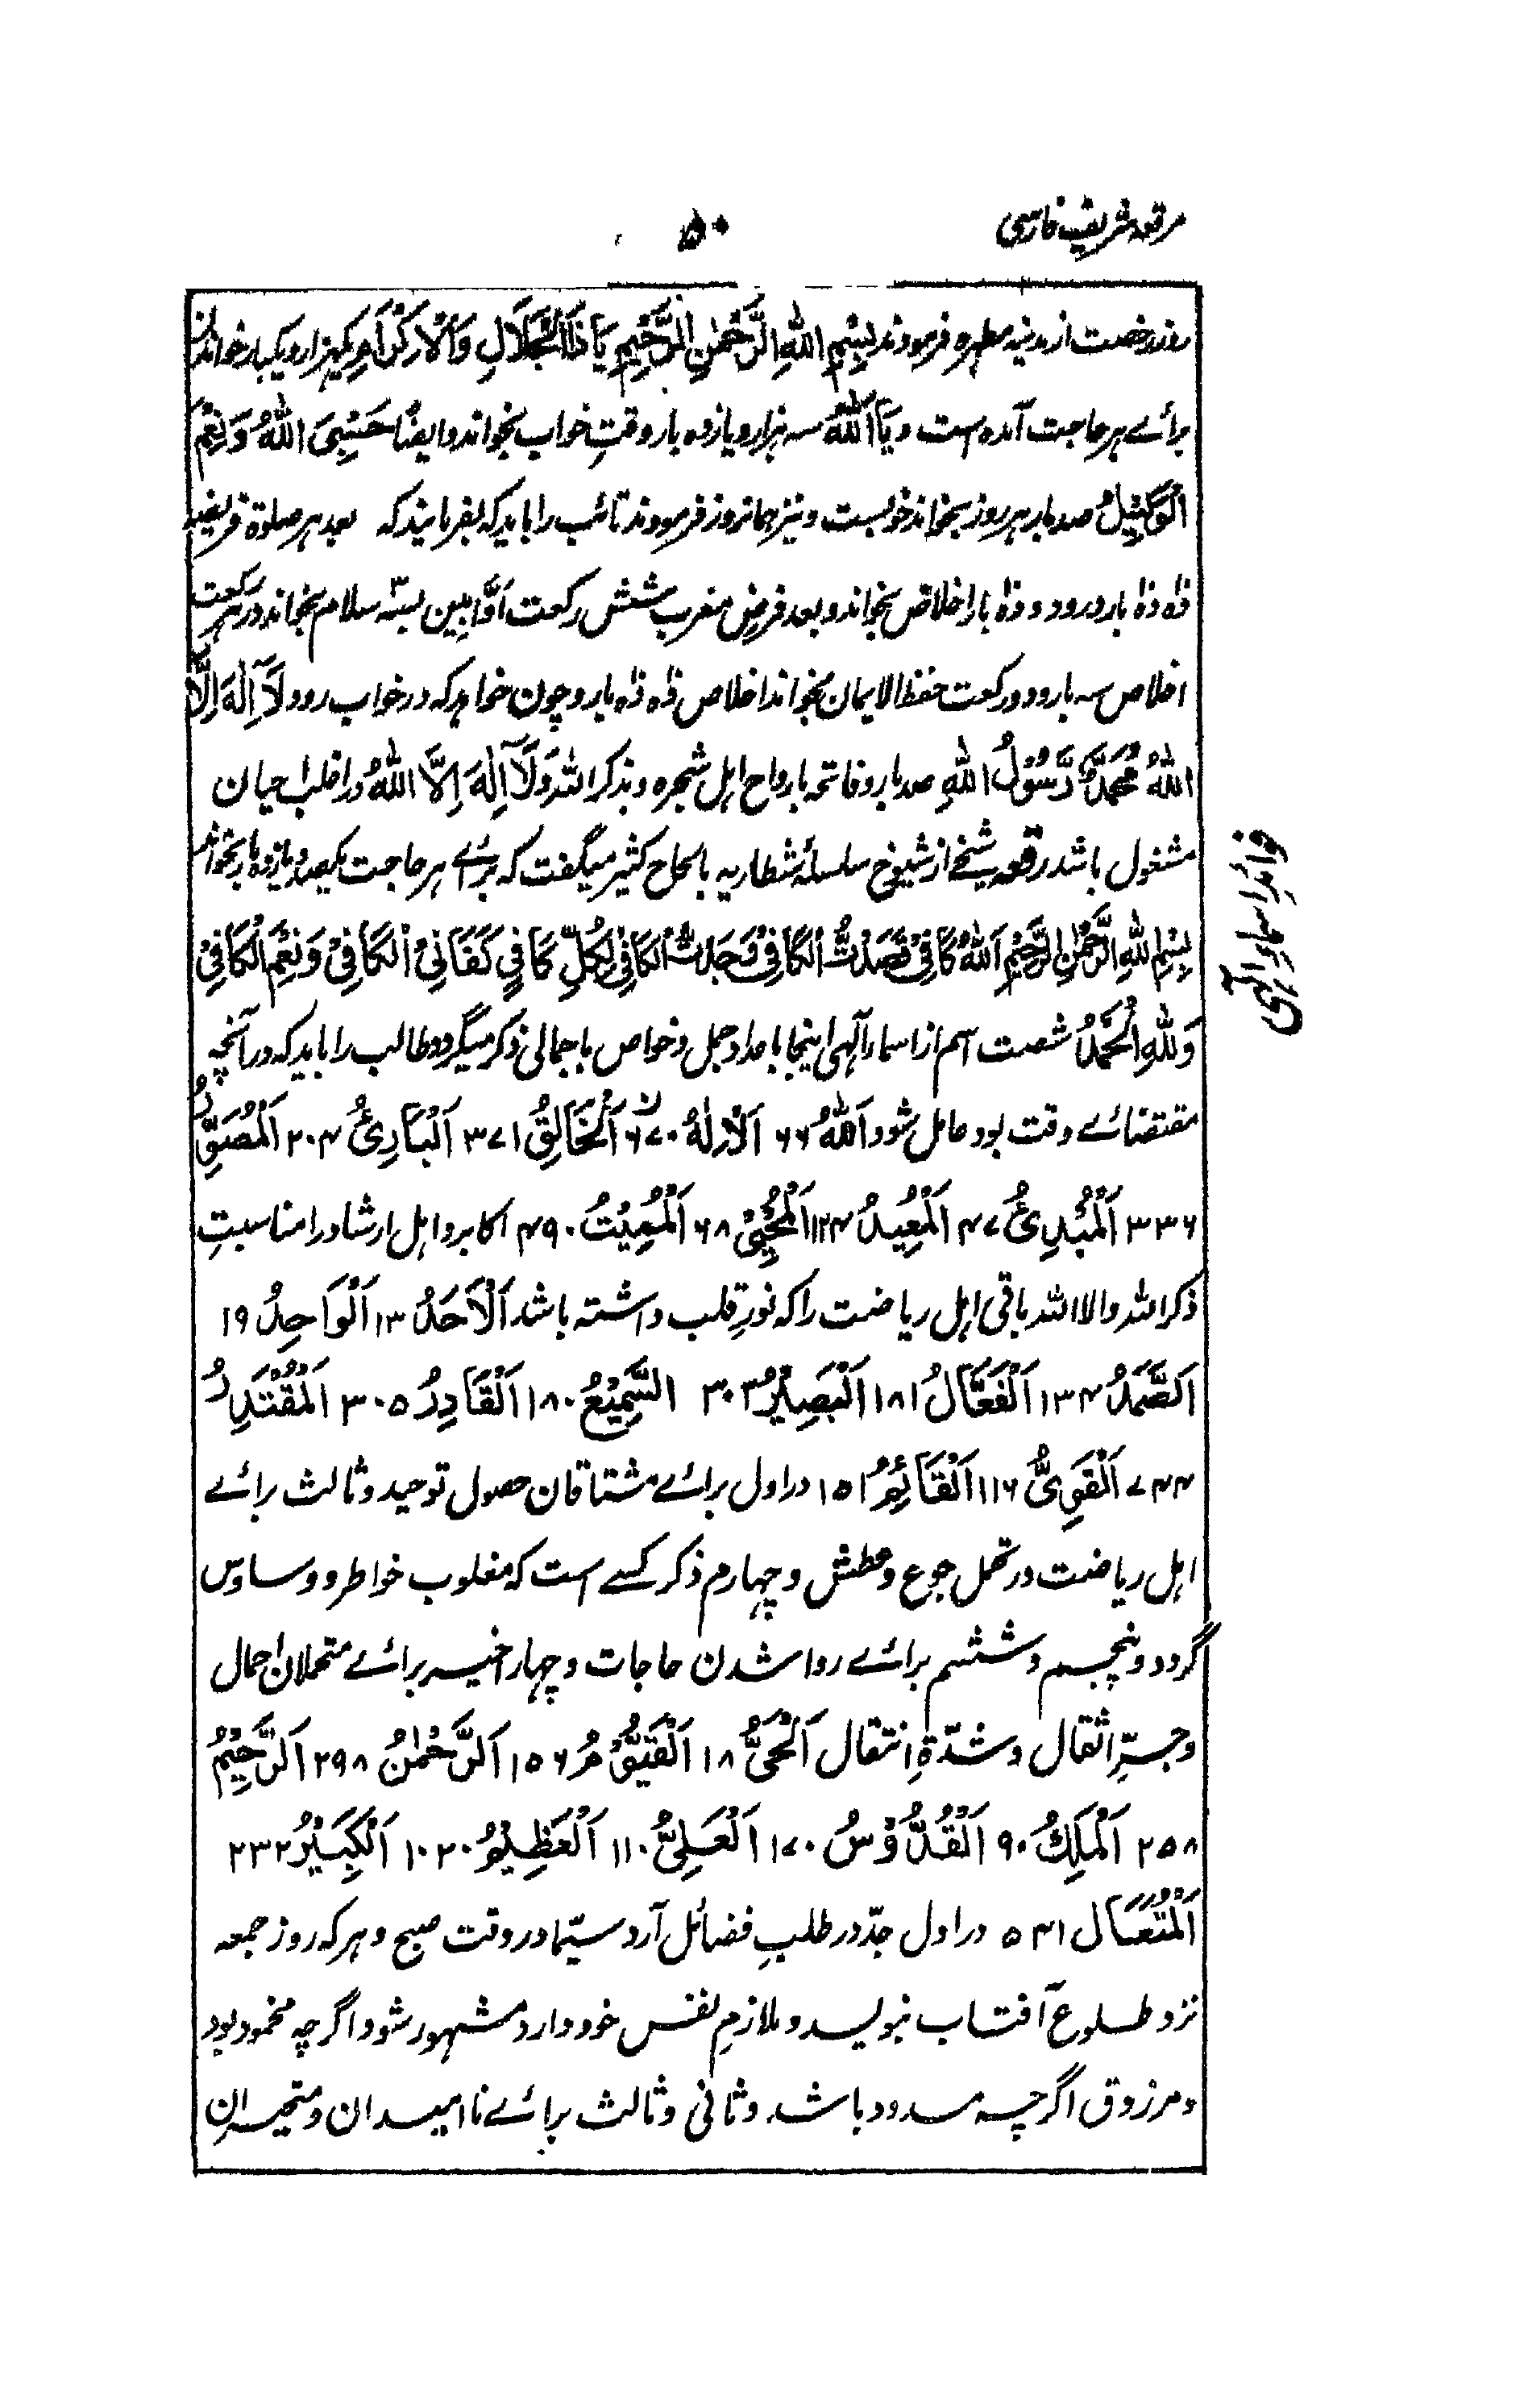 مرقعہ شریف فارسی
۵۰
روز رخصت از مدینہ مطہرہ فرمودند بِسْمِ اللهِ الرَّحْمٰنِ الرَّحِيْمِ يَا ذَا الْجَلَالِ وَالْاِكْرَامِ یکہزار و یکبار خواندن
برائے ہر حاجت آمدہ است و يَا اَللهُ سہ ہزار و یازدہ بار وقتِ خواب بخواند و ایضًا حَسْبِيَ اللهُ وَنِعْمَ
الْوَكِيْلُ صد بار ہر روز بخواند خوبست و نیز ہمانروز فرمودند تائب را باید کہ بفرمایند کہ بعد ہر صلوٰة فریضہ
دہ دہ بار درود و دہ بار اخلاص بخواند و بعد فرض مغرب شش رکعت اَوَّابین بسہ سلام بخواند در ہر رکعت
اخلاص سہ بار و دو رکعت حفظ الایمان بخواند اخلاص دہ دہ بار و چون خواہد کہ در خواب رود لَا اِلٰهَ اِلَّا
اللهُ مُحَمَّدٌ رَّسُوْلُ اللهِ صد بار و فاتحہ بارواح اہل شجرہ و بذکر الله وَلَا اِلٰهَ اِلَّا اللهُ در اغلب احیان
مشغول باشد رقعہ شیخے از شیوخ سلسلۂ شطاریہ بالحاح کثیر میگفت کہ برائے ہر حاجت یکصد و یازدہ بار بخواند
بِسْمِ اللهِ الرَّحْمٰنِ الرَّحِيْمِ اَللهُ كَافِيْ قَصَدْتُ الْكَافِيْ وَجَدْتُ الْكَافِيْ لِكُلِّ كَافِيٍ كَفَانِيْ الْكَافِيْ وَنِعْمَ الْكَافِيْ
وَلِلّٰهِ الْحَمْدُ شصت اسم از اسماء آلہی اینجا باعداد جمل و خواص باجمالی ذکر میگردد طالب را باید کہ در آنچہ
مقتضائے وقت بود عامل شود اَللهُ ۶۶ اَلْاِلٰهُ ۶۷۰ اَلْخَالِقُ ۷۳۱ اَلْبَارِئُ ۲۰۴ اَلْمُصَوِّرُ
۳۳۶ اَلْمُبْدِئُ ۴۷ اَلْمُعِيْدُ ۱۲۴ اَلْمُحْيِيْ ۶۸ اَلْمُمِيْتُ ۴۹۰ اکابر و اہل ارشاد را مناسبتِ
ذکر الله والا الله باقی اہل ریاضت را کہ نورِ قلب داشتہ باشد اَلْاَحَدُ ۱۳ اَلْوَاحِدُ ۱۹
اَلصَّمَدُ ۱۳۴ اَلْفَعَّالُ ۱۸۱ اَلْبَصِيْرُ ۳۰۳ السَّمِيْعُ ۱۸۰ اَلْقَادِرُ ۳۰۵ اَلْمُقْتَدِرُ
۷۴۴ اَلْقَوِيُّ ۱۱۶ اَلْقَائِمُ ۱۵۱ در اول برائے مشتاقان حصول توحید و ثالث برائے
اہل ریاضت در تحمل جوع و عطش و چہارم ذکر کسے است کہ مغلوب خواطر و وساوس
گردد و پنجم و ششم برائے روا شدن حاجات و چہار اخیر برائے متحملان احمال
و جرِّ اثقال و شدّةِ انتقال اَلْحَيُّ ۱۸ اَلْقَيُّوْمُ ۱۵۶ اَلرَّحْمٰنُ ۲۹۸ اَلرَّحِيْمُ
۲۵۸ اَلْمَلِكُ ۹۰ اَلْقُدُّوْسُ ۱۷۰ اَلْعَلِيُّ ۱۱۰ اَلْعَظِيْمُ ۱۰۲۰ اَلْكَبِيْرُ ۲۳۲
اَلْمُتَعَالِ ۵۴۱ در اول جدّ در طلبِ فضائل آرد سیّما در وقت صبح و ہر کہ روز جمعہ
نزد طلوع آفتاب بنویسد و ملازمِ نفس خود دارد مشہور شود اگرچہ مخمود بود
و مرزوق اگرچہ مسدود باشد و ثانی و ثالث برائے ناامیدان و متحیران
فوائدِ اسماءِ آلہی